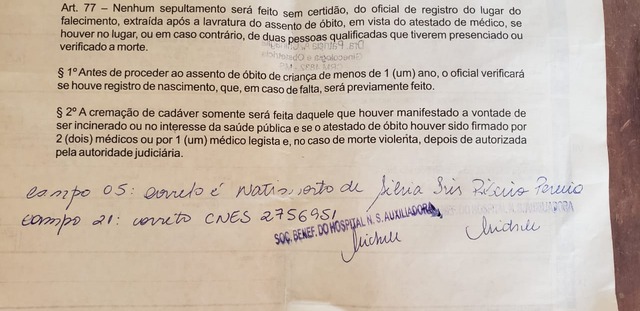 Art. 77 – Nenhum sepultamento será feito sem certidão, do oficial de registro do lugar do
falecimento, extraída após a lavratura do assento de óbito, em vista do atestado de médico, se
houver no lugar, ou em caso contrário, de duas pessoas qualificadas que tiverem presenciado ou
verificado a morte.
§ 1º Antes de proceder ao assento de óbito de criança de menos de 1 (um) ano, o oficial verificará
se houve registro de nascimento, que, em caso de falta, será previamente feito.
§ 2º A cremação de cadáver somente será feita daquele que houver manifestado a vontade de
ser incinerado ou no interesse da saúde pública e se o atestado de óbito houver sido firmado por
2 (dois) médicos ou por 1 (um) médico legista e, no caso de morte violenta, depois de autorizada
pela autoridade judiciária.
campo 05: correto é Natimorto de Silvia Iris Pereira
campo 21: correto CNES 2756951
SOC. BENEF. DO HOSPITAL N. S. AUXILIADORA
Michele Michele